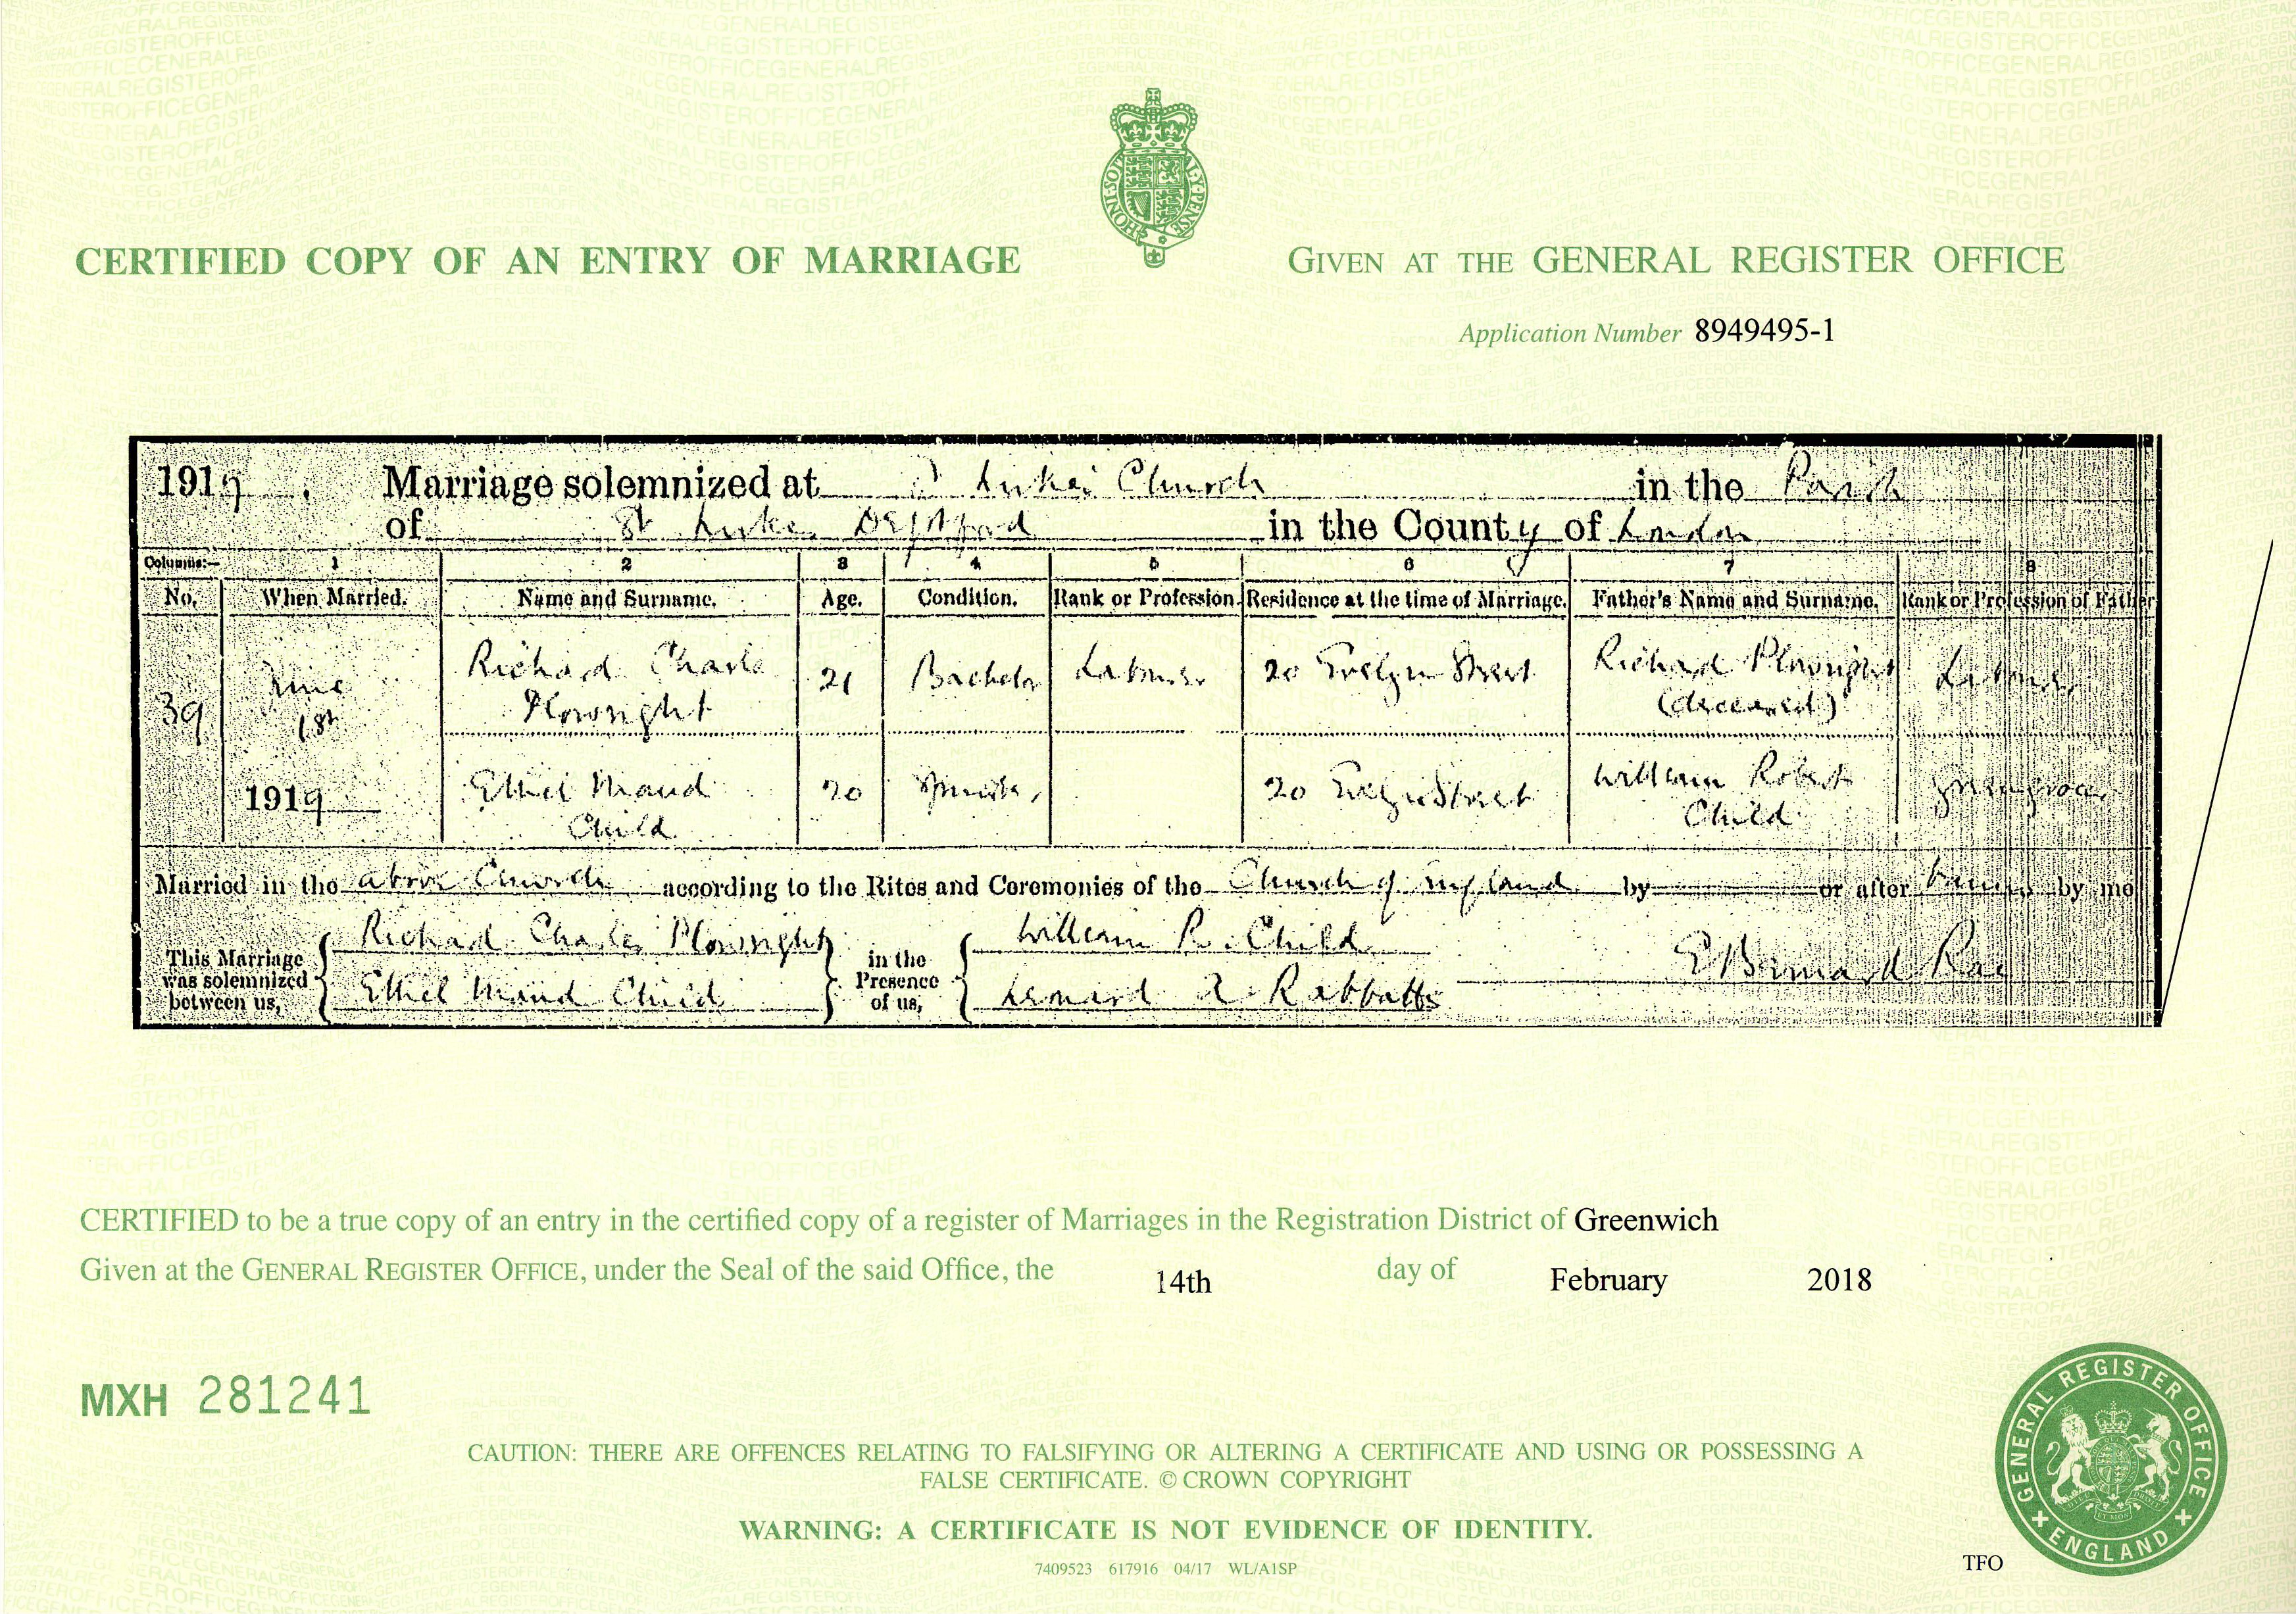 CERTIFIED COPY OF AN ENTRY OF MARRIAGE
GIVEN AT THE GENERAL REGISTER OFFICE
Application Number 8949495-1
1919 Marriage solemnized at St Lukes Church in the Parish
of St Luke Deptford in the County of London
Columns:— 1 2 3 4 5 6 7 8
No. When Married. Name and Surname. Age. Condition. Rank or Profession. Residence at the time of Marriage. Father's Name and Surname. Rank or Profession of Father
39 June 1919
Richard Charles Plowright 21 Bachelor Labourer 20 Evelyn Street Richard Plowright (deceased) Labourer
Ethel Maud Child 20 Spinster 20 Evelyn Street William Robert Child Greengrocer
Married in the above Church according to the Rites and Ceremonies of the Church of England by or after banns by me
This Marriage was solemnized between us,
Richard Charles Plowright
Ethel Maud Child
in the Presence of us,
William R. Child
Leonard A Rabbatts
E Bernard Rae
CERTIFIED to be a true copy of an entry in the certified copy of a register of Marriages in the Registration District of Greenwich
Given at the GENERAL REGISTER OFFICE, under the Seal of the said Office, the 14th day of February 2018
MXH 281241
CAUTION: THERE ARE OFFENCES RELATING TO FALSIFYING OR ALTERING A CERTIFICATE AND USING OR POSSESSING A
FALSE CERTIFICATE. © CROWN COPYRIGHT
WARNING: A CERTIFICATE IS NOT EVIDENCE OF IDENTITY.
7409523 617916 04/17 WL/A1SP
TFO
GENERAL REGISTER OFFICE
ENGLAND